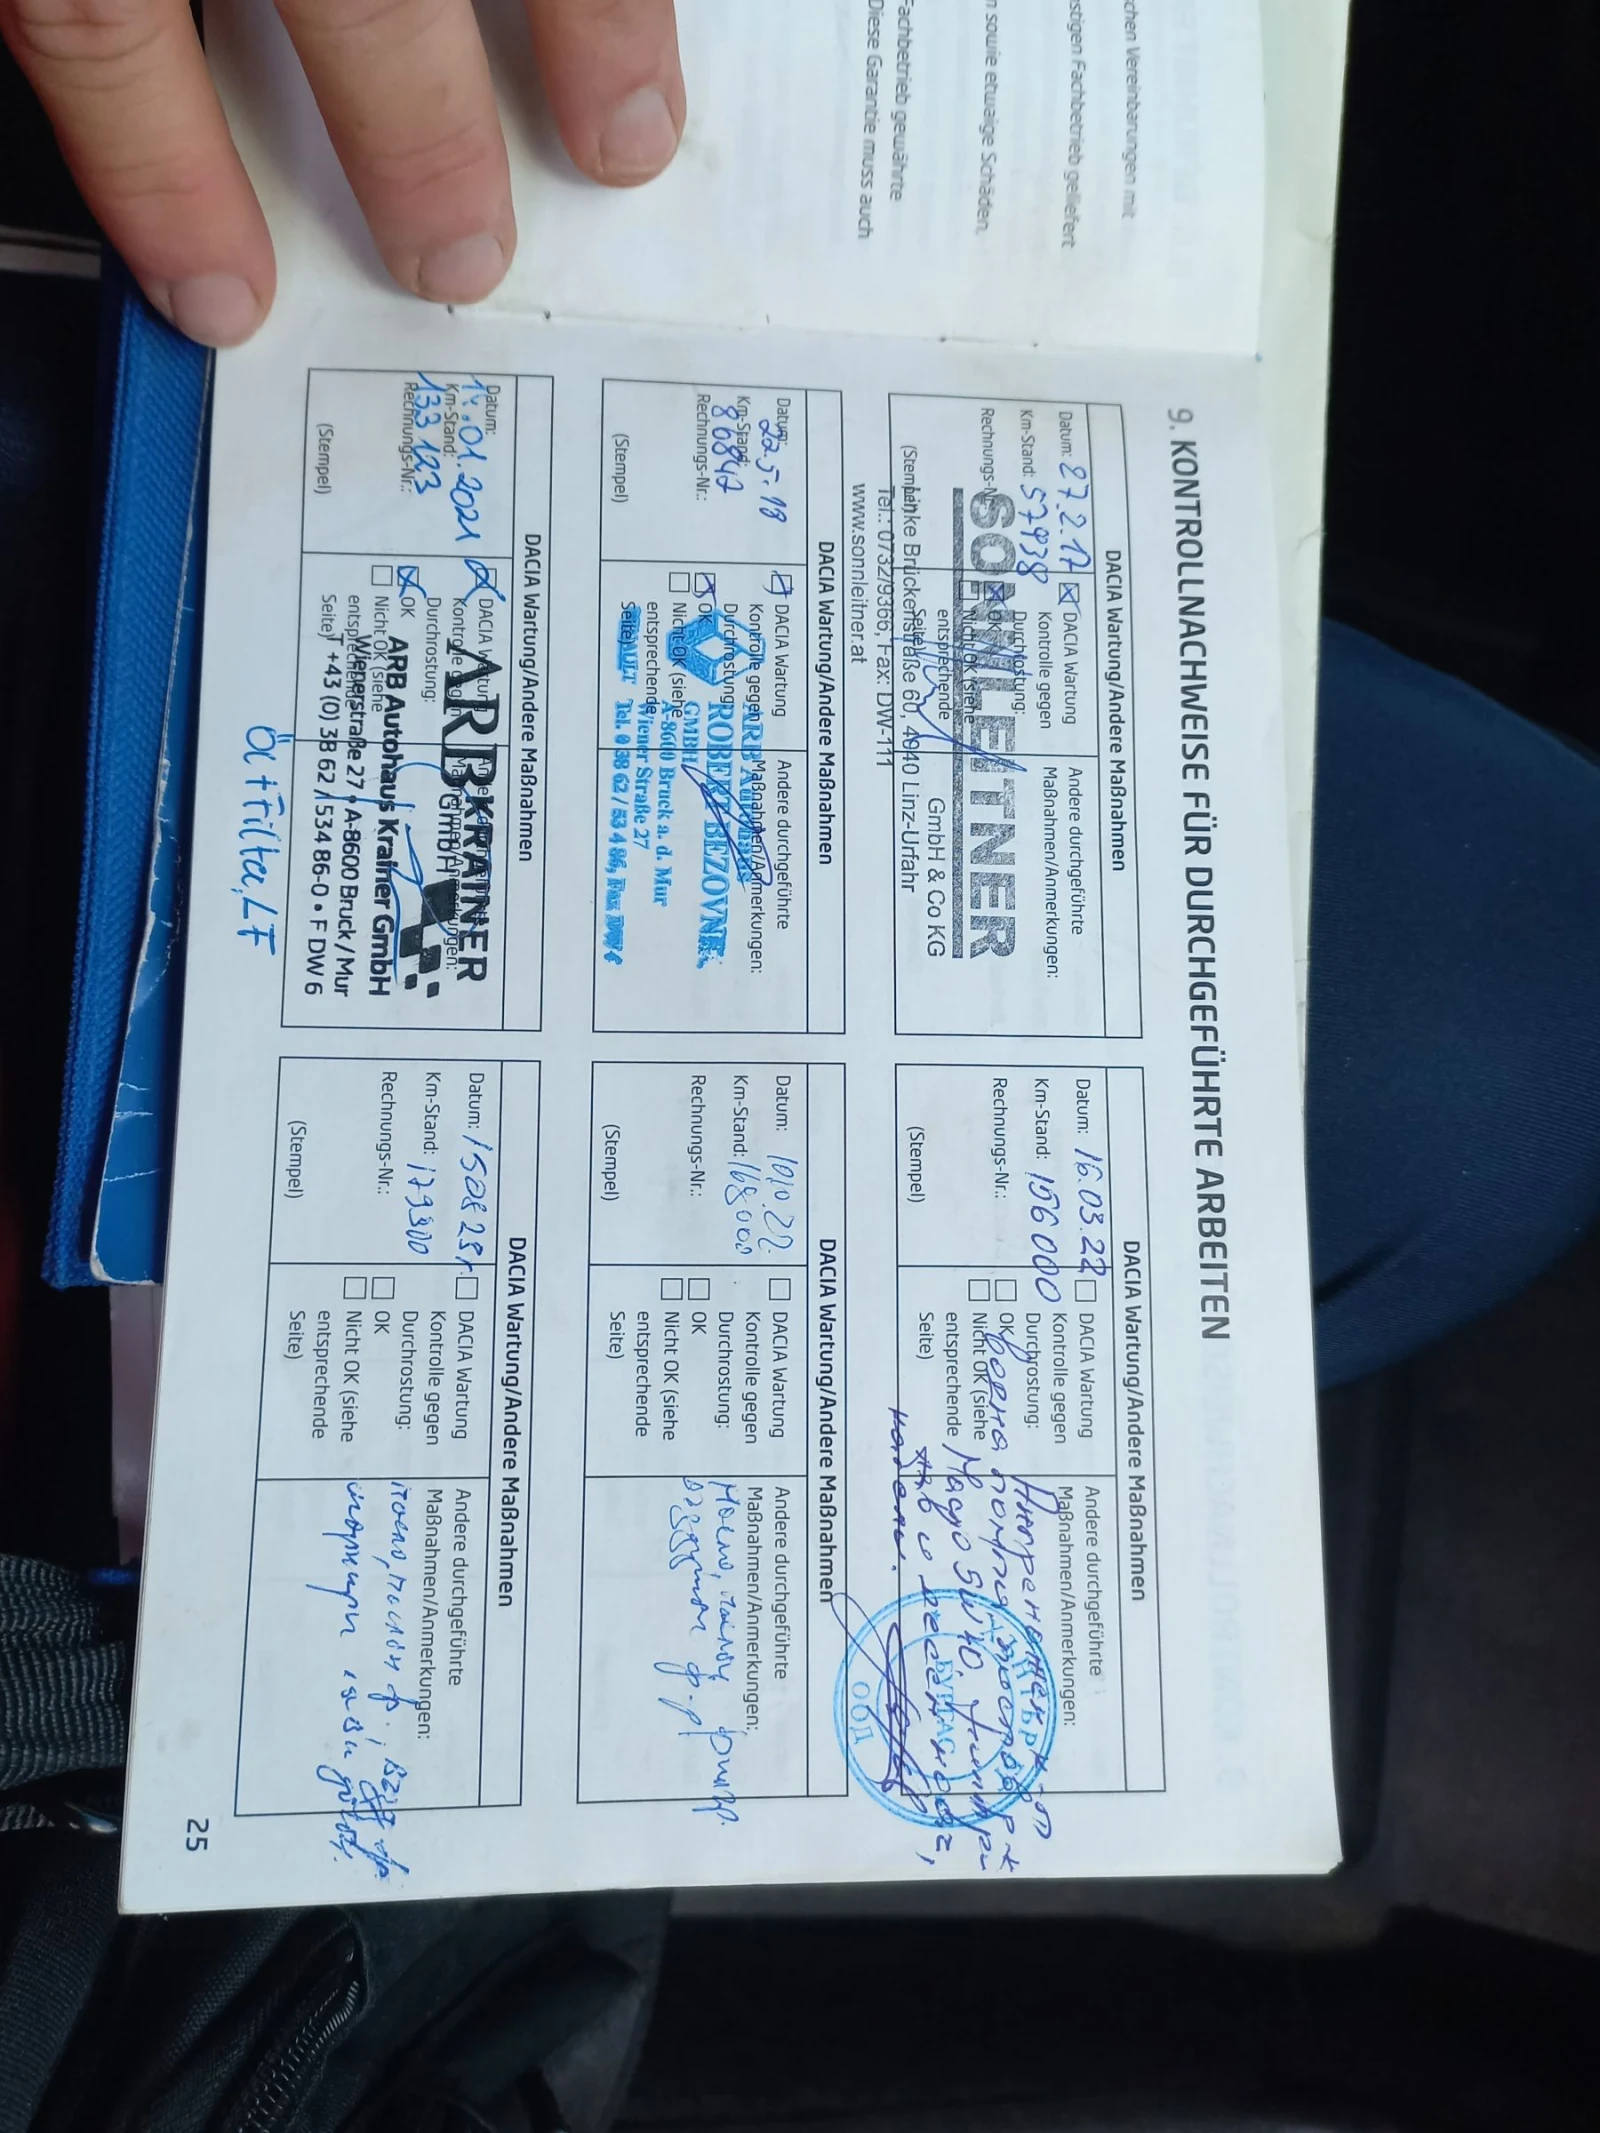 chen Vereinbarungen mit
stigen Fachbetrieb geliefert
n sowie etwaige Schäden.
Fachbetrieb gewährte
Diese Garantie muss auch
9. KONTROLLNACHWEISE FÜR DURCHGEFÜHRTE ARBEITEN
DACIA Wartung/Andere Maßnahmen
Datum: 27.2.17
Km-Stand: 57938
Rechnungs-Nr.:
(Stempel)
DACIA Wartung
Kontrolle gegen
Durchrostung:
OK
Nicht OK (siehe
entsprechende
Seite)
Andere durchgeführte
Maßnahmen/Anmerkungen:
SONNLEITNER
GmbH & Co KG
Brückenstraße 60, 4040 Linz-Urfahr
Tel.: 0732/9366, Fax: DW-111
www.sonnleitner.at
DACIA Wartung/Andere Maßnahmen
Datum: 22.5.18
Km-Stand: 86842
Rechnungs-Nr.:
(Stempel)
DACIA Wartung
Kontrolle gegen
Durchrostung:
OK
Nicht OK (siehe
entsprechende
Seite)
Andere durchgeführte
Maßnahmen/Anmerkungen:
ARB Autohaus
ROBERT BEZOVNIK
GMBH
A-8600 Bruck a. d. Mur
Wiener Straße 27
Tel. 0 38 62 / 53 4 86, Fax DW 6
DACIA Wartung/Andere Maßnahmen
Datum: 14.01.2021
Km-Stand: 133 123
Rechnungs-Nr.:
(Stempel)
DACIA Wartung
Kontrolle gegen
Durchrostung:
OK
Nicht OK (siehe
entsprechende
Seite)
Maßnahmen/Anmerkungen:
ARB KRAINER
GmbH
ARB Autohaus Krainer GmbH
Wienerstraße 27 • A-8600 Bruck/Mur
T +43 (0) 38 62 / 534 86-0 • F DW 6
DACIA Wartung/Andere Maßnahmen
Datum: 16.03.22
Km-Stand: 156 000
Rechnungs-Nr.:
(Stempel)
DACIA Wartung
Kontrolle gegen
Durchrostung:
OK
Nicht OK (siehe
entsprechende
Seite)
Andere durchgeführte
Maßnahmen/Anmerkungen:
водна помпа
5W40
БУЛГАС
ООД
DACIA Wartung/Andere Maßnahmen
Datum: 10.10.22.
Km-Stand: 168000
Rechnungs-Nr.:
(Stempel)
DACIA Wartung
Kontrolle gegen
Durchrostung:
OK
Nicht OK (siehe
entsprechende
Seite)
Andere durchgeführte
Maßnahmen/Anmerkungen:
DACIA Wartung/Andere Maßnahmen
Datum: 15 08 23 г.
Km-Stand: 179300
Rechnungs-Nr.:
(Stempel)
DACIA Wartung
Kontrolle gegen
Durchrostung:
OK
Nicht OK (siehe
entsprechende
Seite)
Andere durchgeführte
Maßnahmen/Anmerkungen:
25